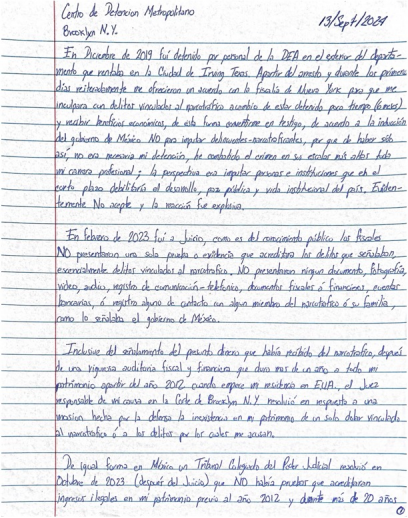 Centro de Detencion Metropolitano
Brooklyn N.Y.
13/Sept/2024
En Diciembre de 2019 fui detenido por personal de la DEA en el exterior del departa-
mento que rentaba en la Ciudad de Irving Texas. Apartir del arresto y durante los primeros
días reiteradamente me ofrecieron un acuerdo con la fiscalía de Nueva York para que me
inculpara con delitos vinculados al narcotrafico acambio de estar detenido poco tiempo (6 meses)
y recibir beneficios económicos, de esta forma convertirme en testigo, de acuerdo a la inducción
del gobierno de México. NO para imputar delincuentes-narcotraficantes, por que de haber sido
así, no era necesaria mi detención, he combatido el crimen en su escalar más altos toda
mi carrera profesional; y la perspectiva era imputar personas e instituciones que en el
corto plazo debilitaría el desarrollo, paz pública y vida institucional del país. Eviden-
temente No acepte y la reacción fue explosiva.
En febrero de 2023 fui a Juicio, como es del conocimiento público los fiscales
NO presentaron una sola prueba o evidencia que acreditara los delitos que señalaban,
esencialmente delitos vinculados al narcotrafico. NO presentaron ningun documento, fotografía,
video, audio, registro de comunicación-telefonica, documentos fiscales ó financieros, cuentas
bancarias, ó registro alguno de contacto con algun miembro del narcotrafico ó su familia,
como lo señalaba el gobierno de México.
Inclusive del señalamiento del presunto dinero que había recibido del narcotrafico, después
de una rigurosa auditoria fiscal y financiera que duro mas de un año a todo mi
patrimonio apartir del año 2012 cuando empece mi residencia en EUA, el Juez
responsable de mi causa en la Corte de Brooklyn N.Y resolvió en respuesta a una
mosion hecha por la defensa la inexistencia en mi patrimonio de un solo dolar vinculado
al narcotrafico ó a los delitos por los cuales me acusan.
De igual forma en México un Tribunal Colegiado del Poder Judicial resolvió en
Octubre de 2023 (después del Juicio) que NO había pruebas que acreditaran
ingresos ilegales en mi patrimonio previo al año 2012 y durante más de 20 años
1